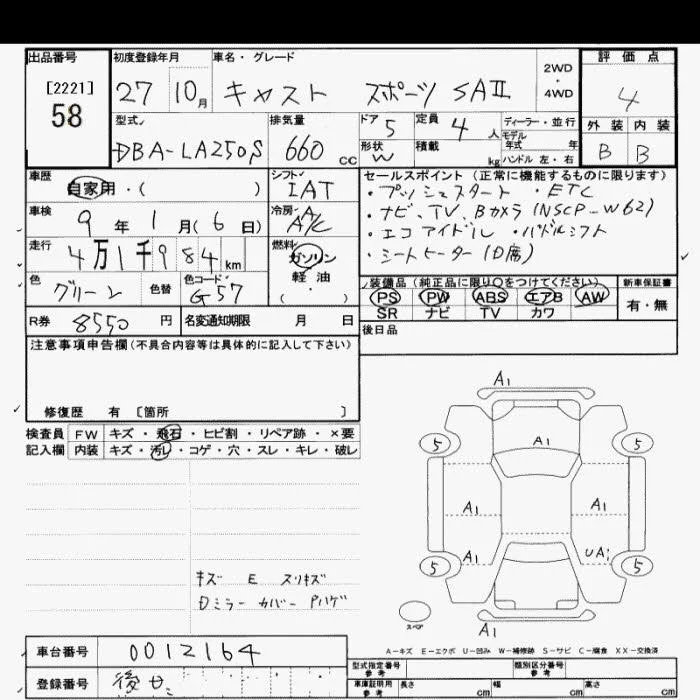 出品番号
[2221]
58
初度登録年月
27 10月
車名・グレード
キャスト スポーツ SAⅡ
2WD
・
4WD
評価点
4
外装 内装
B B
型式
DBA-LA250S
排気量
660 CC
ドア 5
形状 W
定員 4 人
積載 kg
ディーラー・並行
モデル
年式 年
ハンドル 左・右
車歴
自家用・( )
シフト
IAT
車検
9年 1月 (6日)
冷房
A/C
走行
4万1千984 km
燃料
ガソリン
軽油
( ・ )
色
グリーン
色替
色コード
G57
R券 8550 円
名変通知期限 月 日
セールスポイント (正常に機能するものに限ります)
・プッシュスタート ・ETC
・ナビ、TV、Bカメラ (NSCP-W62)
・エコアイドル ・パドルシフト
・シートヒーター (D席)
装備品 (純正品に限り○をつけてください)
PS PW ABS エアB AW
SR ナビ TV カワ
新車保証書
有・無
後日品
注意事項申告欄 (不具合内容等は具体的に記入して下さい)
修復歴 有 〔箇所 〕
検査員 FW キズ・飛石・ヒビ割・リペア跡・×要
記入欄 内装 キズ・汚レ・コゲ・穴・スレ・キレ・破レ
キズ E スリキズ
Dミラー カバー Pハゲ
A1
5 A1 5
A1 A1
A1 UA1
5 5
スペア
A1
A-キズ E-エクボ U-凹み W-補修跡 S-サビ C-腐食 XX-交換済
車台番号 0012164
登録番号 後セ
型式指定番号
参考
類別区分番号
参考
車庫証明用
参考
長さ cm 幅 cm 高さ cm